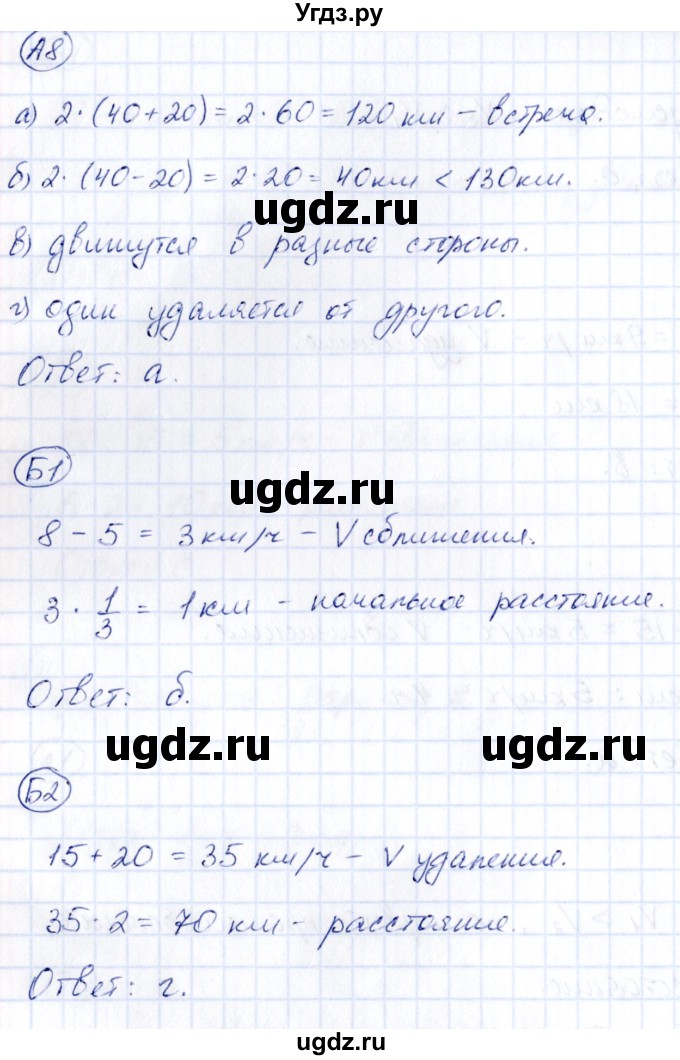 Угдз.ру
А8
а) 2·(40+20) = 2·60 = 120 км – встреча.
б) 2·(40–20) = 2·20 = 40 км < 130 км.
ugdz.ru
в) движутся в разные стороны.
г) один удаляется от другого.
Ответ: а.
Б1
ugdz.ru
8 – 5 = 3 км/ч – V сближения.
3 · 1/3 = 1 км – начальное расстояние.
Ответ: б.
ugdz.ru ugdz.ru
Б2
15 + 20 = 35 км/ч – V удаления.
35·2 = 70 км – расстояние.
Ответ: г.
ugdz.ru